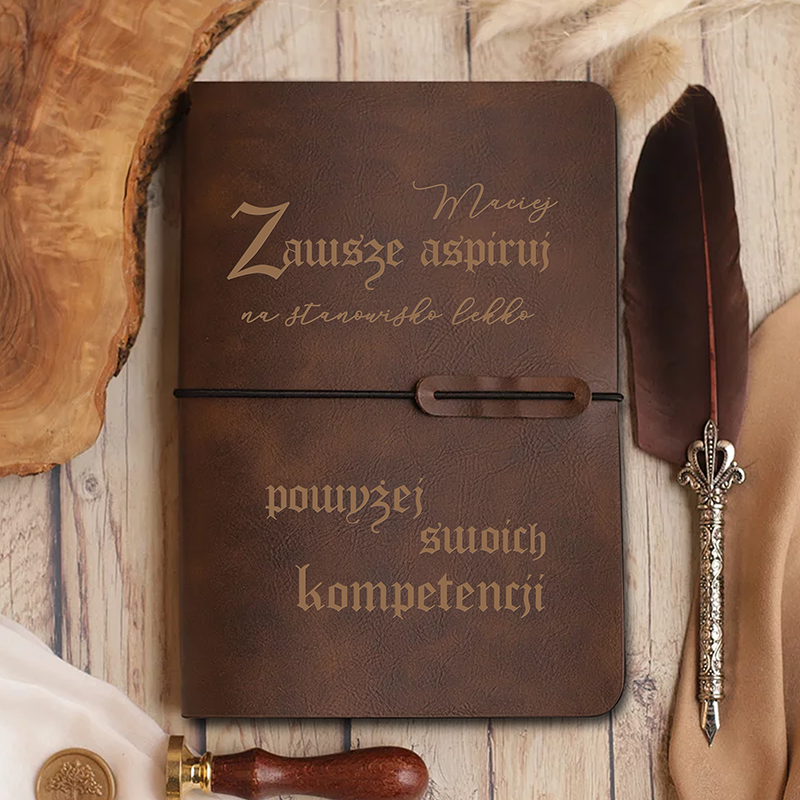 Maciej
Zawsze aspiruj
na stanowisko lekko
powyżej
swoich
kompetencji